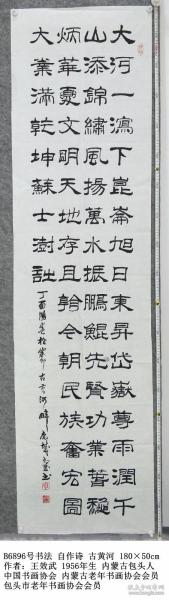 大河一瀉下崑崙旭日東昇岱嶽尊雨潤千
山添錦繡風揚萬水振鵬鯤先賢功業譽穐
炳華夏文明天地存且翰令朝民族奮宏圖
大業滿乾坤蘇士澍誌
丁酉
B6896号书法 自作诗 古黄河 180×50cm
作者：王效武 1956年生 内蒙古包头人
中国书画协会 内蒙古老年书画协会会员
包头市老年书画协会会员